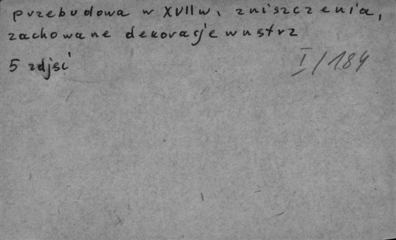 przebudowa w XVII w, zniszczenia,
zachowane dekoracje wnstrz
5 zdjść
I/184